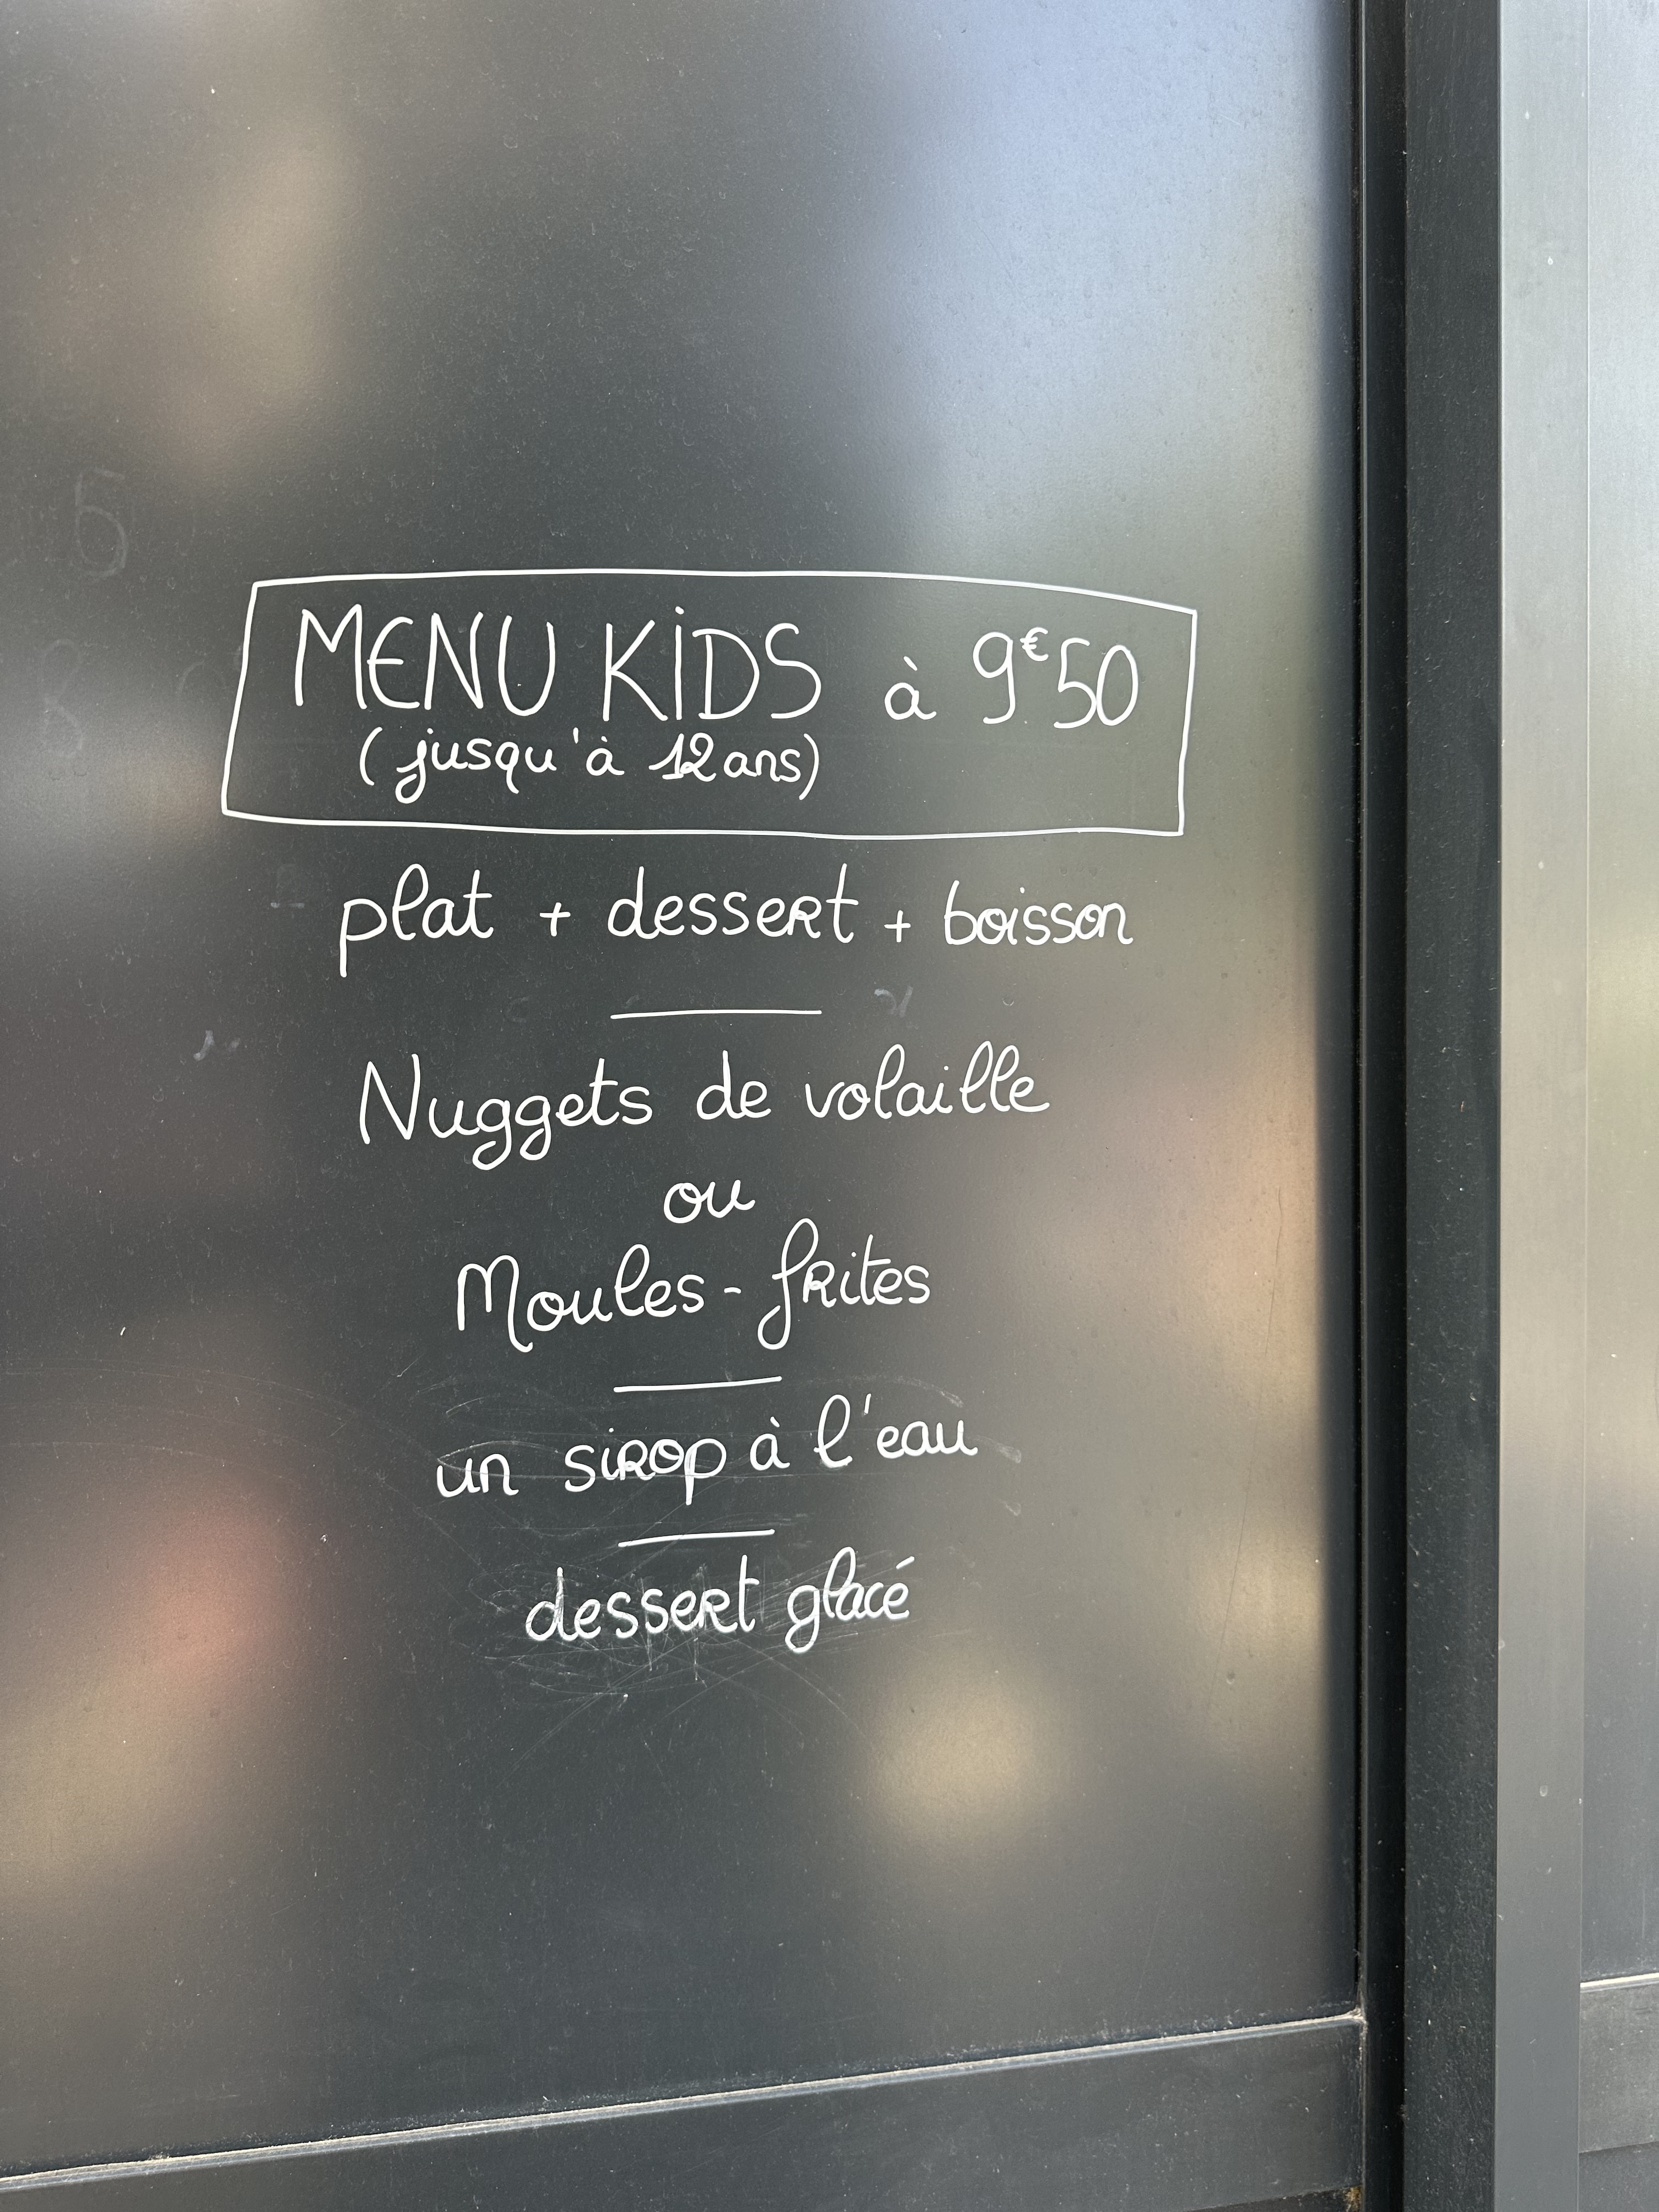 MENU KIDS à 9€50
(jusqu'à 12 ans)
plat + dessert + boisson
Nuggets de volaille
ou
Moules-frites
un sirop à l'eau
dessert glacé